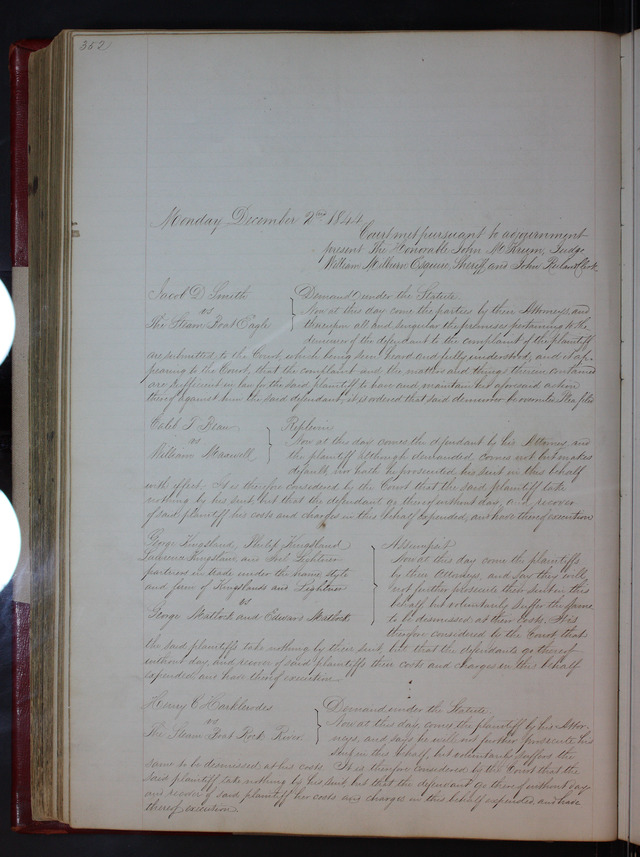 352
Monday December 2nd 1844
Court met pursuant to adjournment
present The Honorable John M Krum, Judge
William Milburn Esquire Sheriff, and John Ruland Clerk
Jacob D Smith
vs
The Steam Boat Eagle
Demand under the Statute
Now at this day come the parties by their Attorneys, and
thereupon all and singular the premises pertaining to the
demurrer of the defendant to the complaint of the plaintiff
are submitted to the Court, which being seen heard and fully understood, and it ap-
pearing to the Court, that the complaint and the matters and things therein contained
are sufficient in law for the said plaintiff to have and maintain his aforesaid action
thereof against him the said defendant, it is ordered that said demurrer be overruled
Caleb T Dean
vs
William Maxwell
Replevin
Now at this day comes the defendant by his Attorney and
the plaintiff although demanded comes not but makes
default, nor hath he prosecuted his suit in this behalf
with effect. It is therefore considered by the Court that the said plaintiff take
nothing by his suit, but that the defendant go thereof without day, and recover
of said plaintiff his costs and charges in this behalf expended, and have thereof execution
George Kingsland, Philip Kingsland
Lawrence Kingsland and Lightner
partners in trade under the name style
and firm of Kingslands and Lightner
vs
George Matlock and Edward Matlock
Assumpsit
Now at this day come the plaintiffs
by their Attorneys, and say they will
not further prosecute their suit in this
behalf but voluntarily suffer the same
to be dismissed at their costs. It is
therefore considered by the Court that
the said plaintiffs take nothing by their suit, but that the defendants go thereof
without day, and recover of said plaintiffs their costs and charges in this behalf
expended and have thereof execution
Henry C Harklerodes
vs
The Steam Boat Rock River
Demand under the Statute
Now at this day, comes the plaintiff by his Attor-
neys, and says he will not further prosecute his
suit in this behalf, but voluntarily suffers the
same to be dismissed at his costs. It is therefore considered by the Court that the
said plaintiff take nothing by his suit, but that the defendant go thereof without day
and recover of said plaintiff his costs and charges in this behalf expended, and have
thereof execution